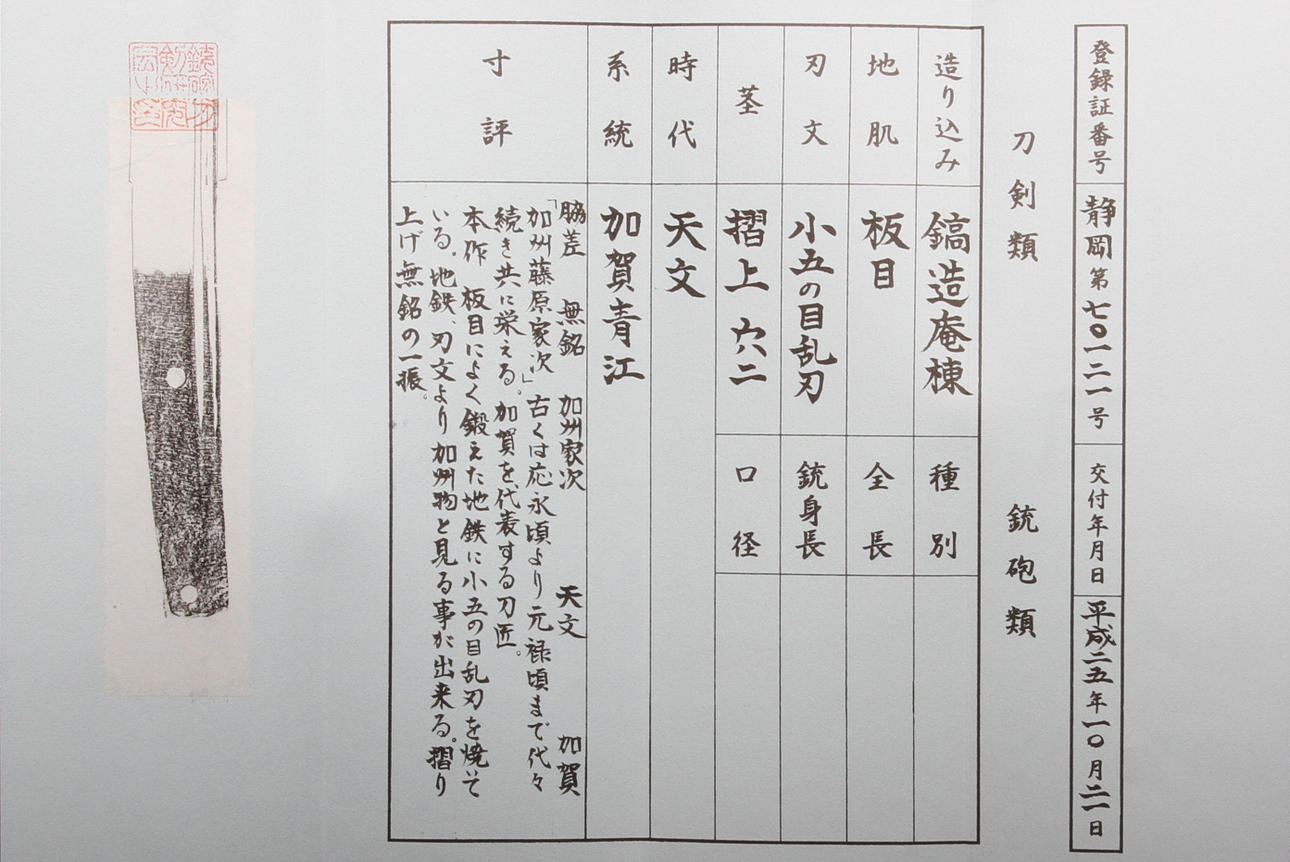 登録証番号 静岡 第 七〇一二一 号 交付年月日 平成二五年一〇月二一日
刀剣類 銃砲類
造り込み 鎬造庵棟 種別
地肌 板目 全長
刃文 小五の目乱刃 銃身長
茎 摺上 穴二 口径
時代 天文
系統 加賀青江
寸評
脇差 無銘 加州家次 天文 加賀
「加州藤原家次」古くは応永頃より元禄頃まで代々
続き共に栄える。加賀を代表する刀匠。
本作 板目によく鍛えた地鉄に小五の目乱刃を焼そ
いる。地鉄、刃文より加州物と見る事が出来る。摺り
上げ無銘の一振。